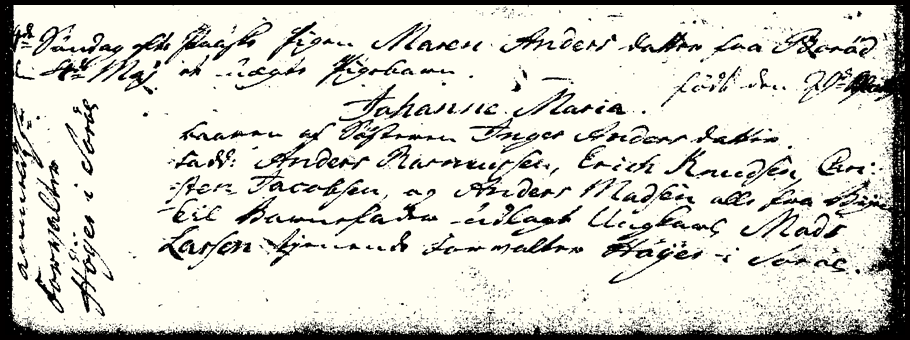 4de Søndag efter Paaske Pigen Maren Anders datter fra Boröd
4de Maj et uægte Pigebarn.
född den 29de April
Johanne Maria.
baaren af Søsteren Inger Anders datter.
fadd: Anders Rasmussen, Erich Knudsen, Chri-
sten Jacobsen, og Anders Madsen alle fra Byen
til Barnefader udlagt Ungkarl Mads
Larsen tjenende Forvalter Höyer i Sorøe.
Forvalter
Höyer i Sorøe